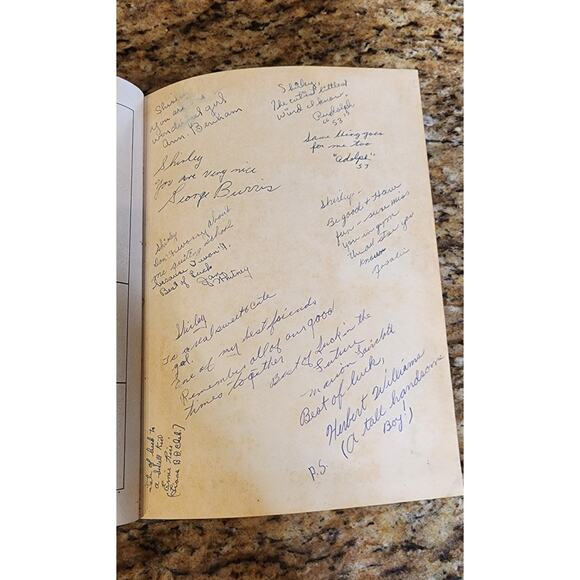 Shirley
you are a
wonderful girl
Ann Benham
Shirley,
The cutest littlest
Wierd I know.
Rudolph
"53"
Same thing goes
for me too
"Adolph"
53
Shirley
You are very nice
George Burris
Shirley
Don't worry about
the
because I won't.
Best of luck
Jane
Whitney
Shirley-
Be good & Have
fun - sure miss
you in gym
the all star you
known
Shirley
To a real sweet & cute
gal.
One of my best friends
Remember all of our good
times together
Best of luck in the
Future
Marion
Best of luck,
Herbert Williams
(A tall handsome
Boy!)
P.S.
Lots of luck to
a swell kid